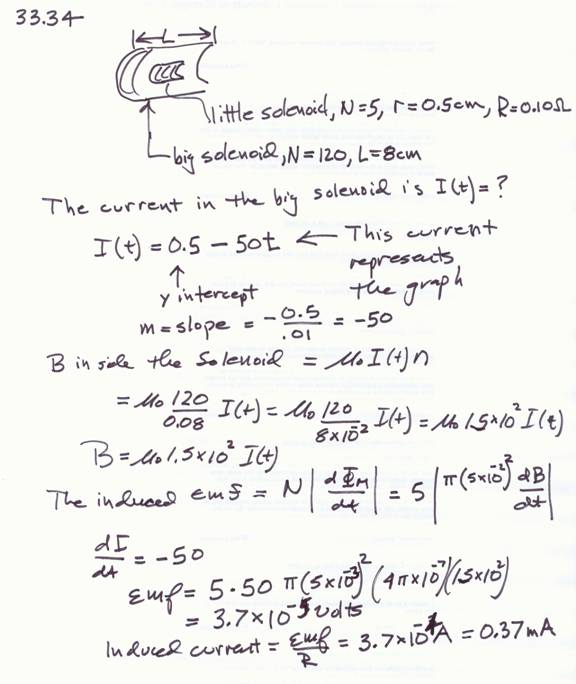 33.34
L
little solenoid, N=5, r=0.5cm, R=0.10Ω
big solenoid, N=120, L=8cm
The current in the big solenoid is I(t)=?
I(t) = 0.5 – 50t ← This current
represents
the graph
↑
y intercept
m = slope = -0.5/.01 = -50
B inside the Solenoid = μ₀I(t)n
= μ₀ 120/0.08 I(t) = μ₀ 120/8×10⁻² I(t) = μ₀ 1.5×10² I(t)
B = μ₀ 1.5×10² I(t)
The induced emf = N |dΦM/dt| = 5 |π(5×10⁻²)² dB/dt|
dI/dt = -50
Emf = 5·50 π(5×10⁻³)² (4π×10⁻⁷)(1.5×10²)
= 3.7×10⁻⁵ volts
Induced current = Emf/R = 3.7×10⁻⁴A = 0.37mA